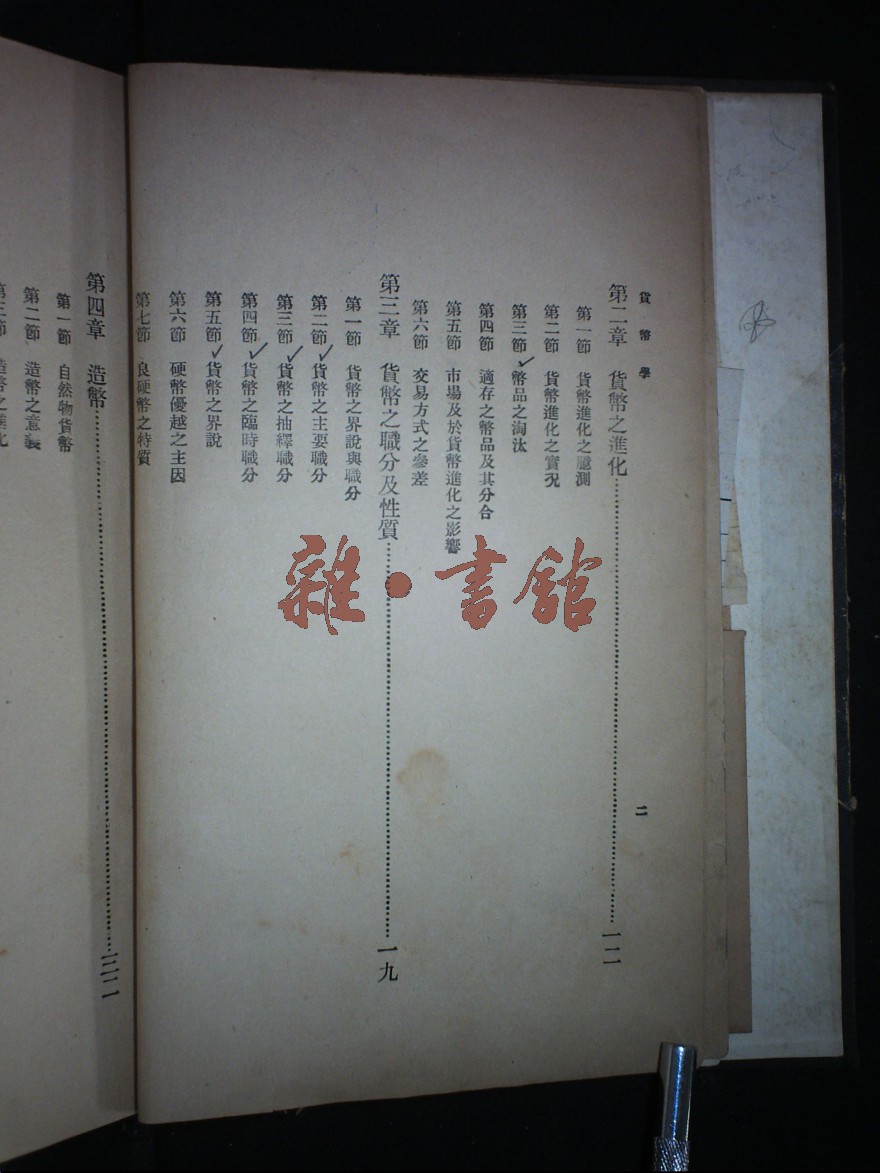 貨幣學
二
第二章　貨幣之進化……一二
第一節　貨幣進化之臆測
第二節　貨幣進化之實況
第三節　幣品之淘汰
第四節　適存之幣品及其分合
第五節　市場及於貨幣進化之影響
第六節　交易方式之參差
第三章　貨幣之職分及性質……一九
第一節　貨幣之界說與職分
第二節　貨幣之主要職分
第三節　貨幣之抽繹職分
第四節　貨幣之臨時職分
第五節　貨幣之界說
第六節　硬幣優越之主因
第七節　良硬幣之特質
第四章　造幣……三二
第一節　自然物貨幣
第二節　造幣之意義
第三節　造幣之進化
雜·書館